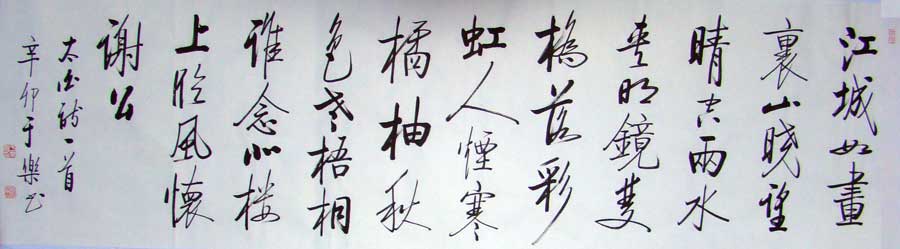 江城如畫
裏山晓望
晴空兩水
夾明鏡雙
橋落彩
虹人煙寒
橘柚秋
色老梧桐
谁念北楼
上临風懷
謝公
太白詩一首
辛卯于樂书